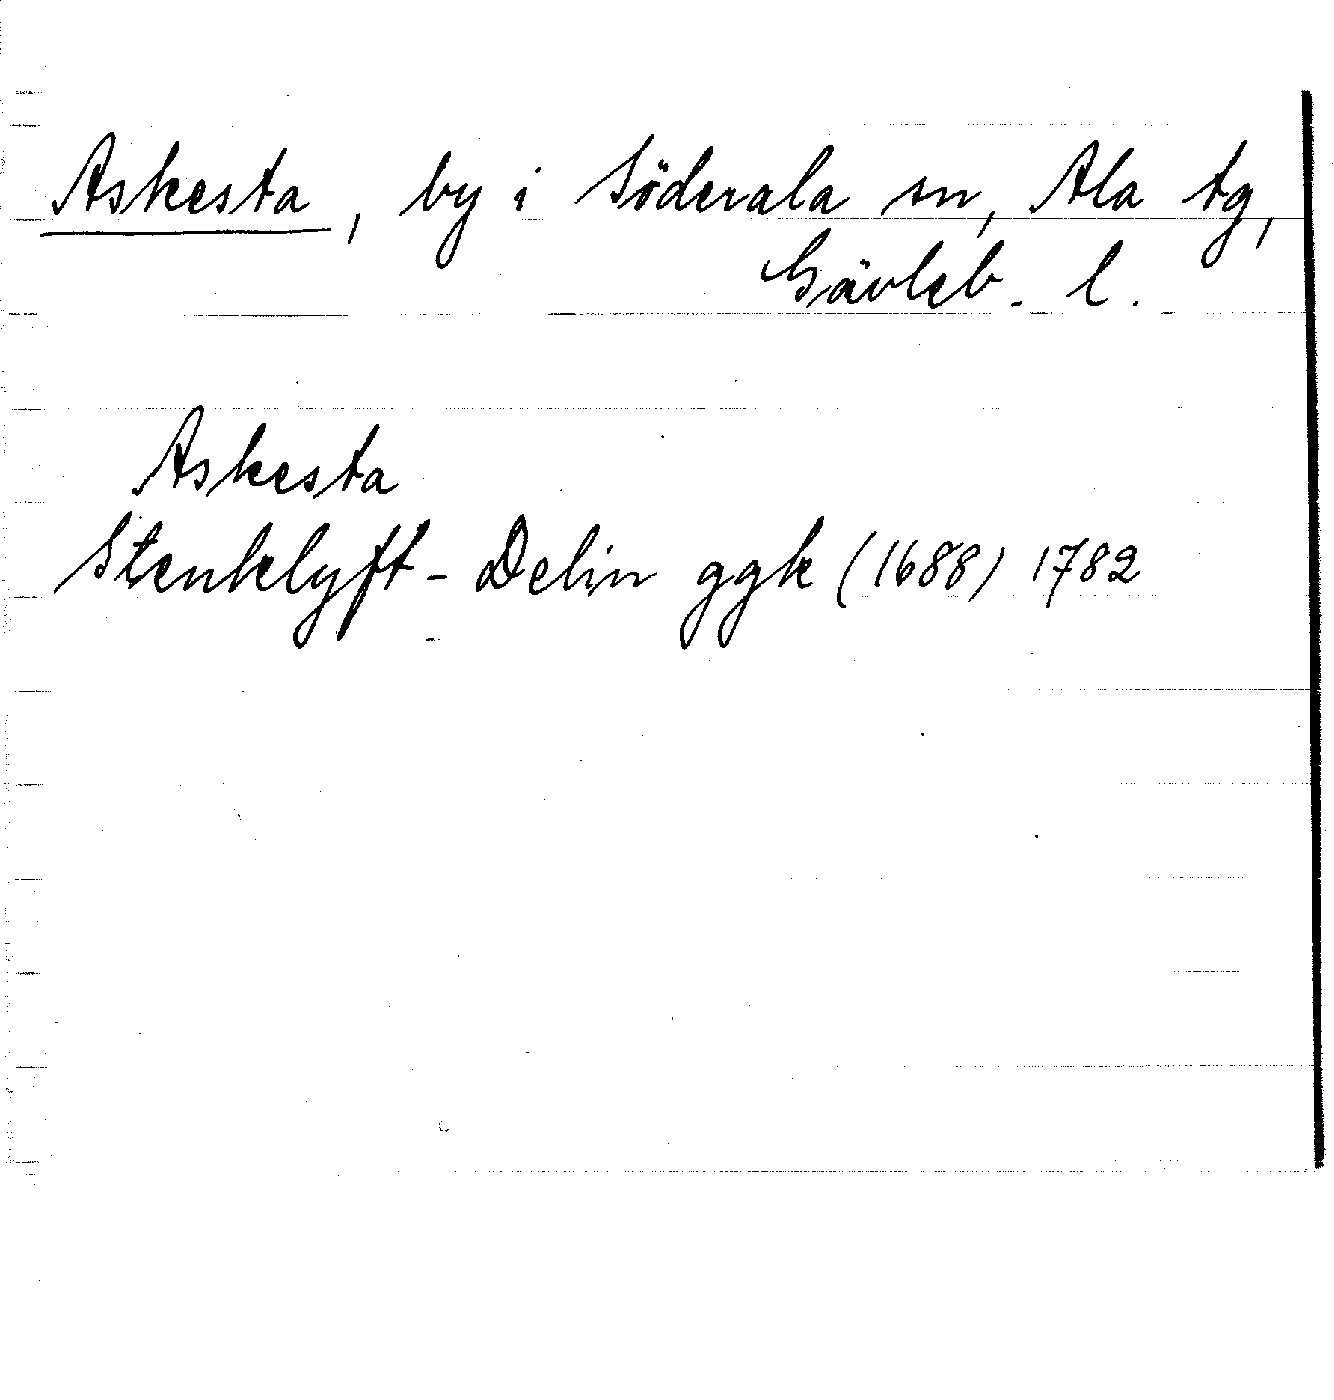 Askesta, by i Söderala sn, Ala tg,
Gävleb. l.
Askesta
Stenklyft - Delin ggk (1688) 1782